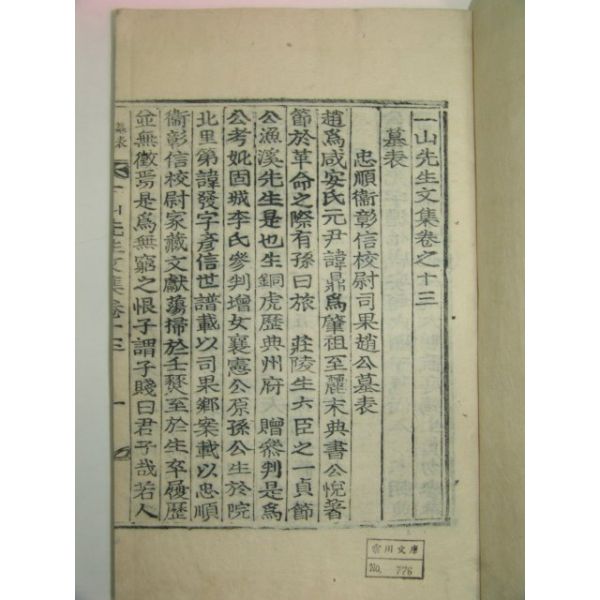 一山先生文集卷之十三
墓表
忠順衞彰信校尉司果趙公墓表
趙爲咸安氏元尹諱鼎爲肇祖至麗末典書公悅著
節於革命之際有孫曰旅 莊陵生六臣之一貞節
公漁溪先生是也生銅虎歷典州府 贈參判是爲
公考妣固城李氏參判增女襄憲公原孫公生於院
北里第諱發字彥信世譜載以司果鄉案載以忠順
衞彰信校尉家藏文獻蕩掃於壬燹至於生卒履歷
並無徵焉是爲無窮之恨子謂子賤曰君子哉若人
墓表
一山先生文集卷十三
一
雲川文庫
No. 776